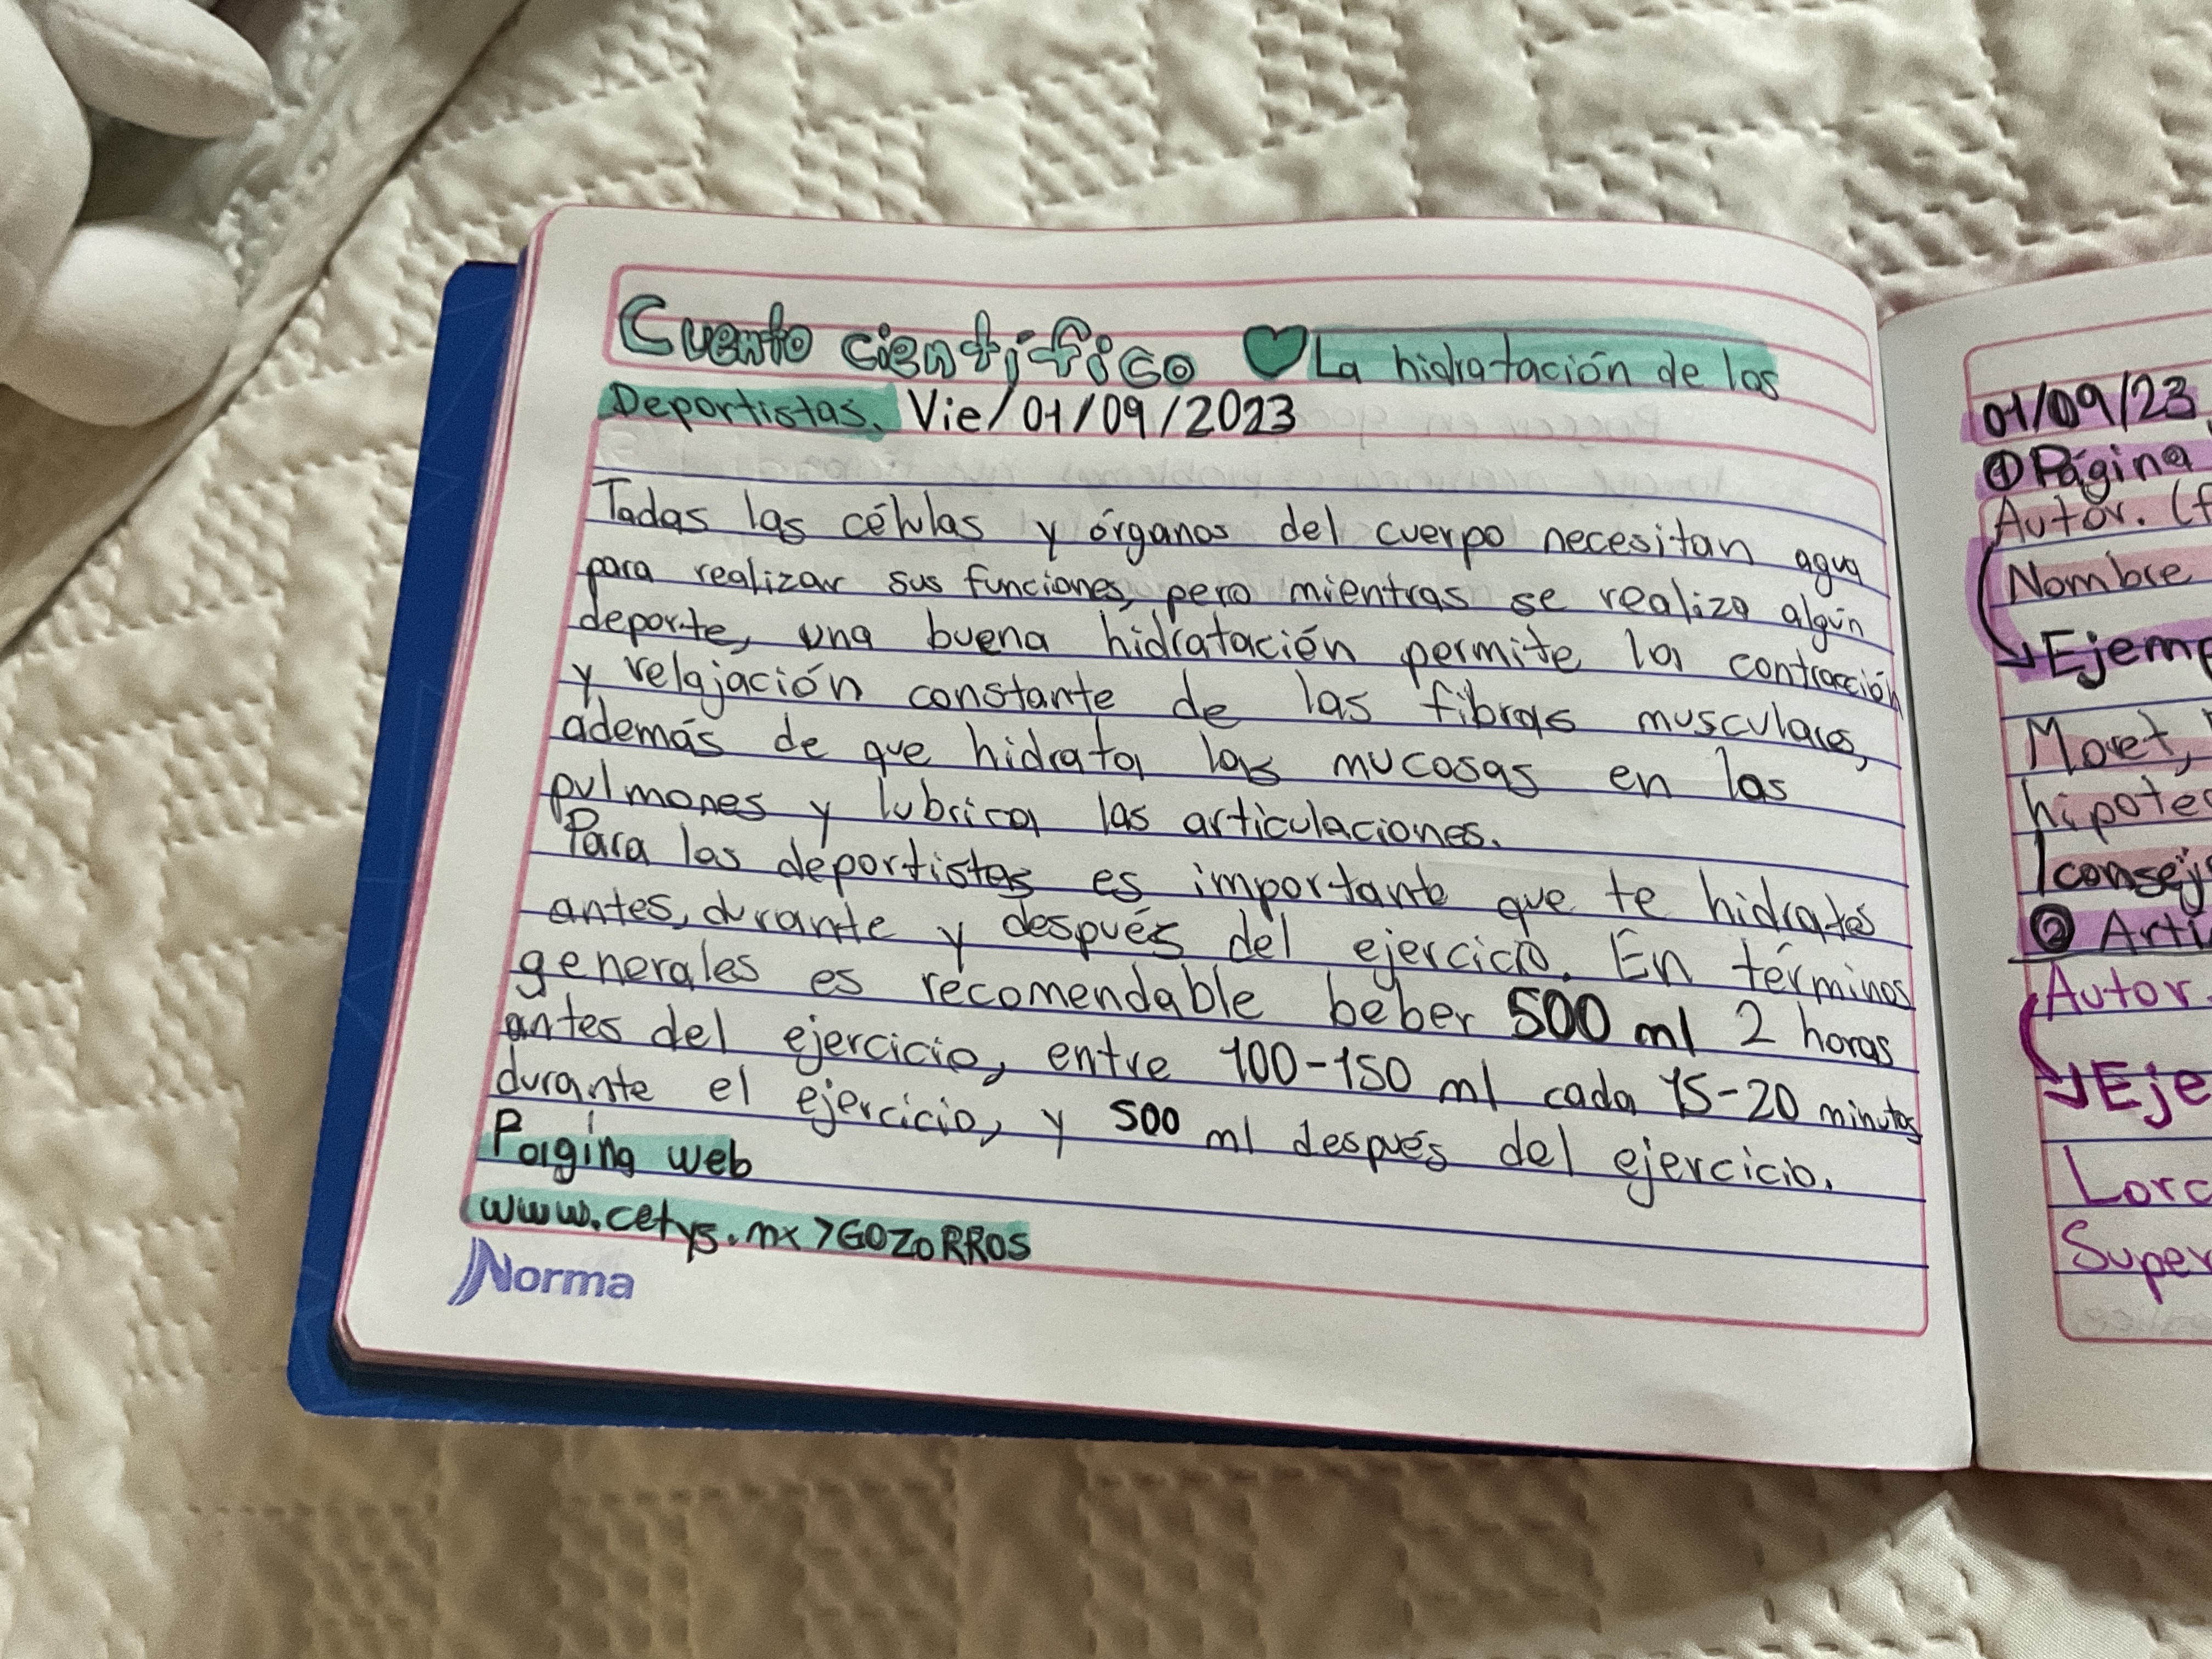 Cuento científico ♥ La hidratación de los
Deportistas. Vie/01/09/2023
Todas las células y órganos del cuerpo necesitan agua
para realizar sus funciones, pero mientras se realiza algún
deporte, una buena hidratación permite la contracción
y relajación constante de las fibras musculares,
además de que hidrata las mucosas en los
pulmones y lubrica las articulaciones.
Para los deportistas es importante que te hidrates
antes, durante y después del ejercicio. En términos
generales es recomendable beber 500 ml 2 horas
antes del ejercicio, entre 100-150 ml cada 15-20 minutos
durante el ejercicio, y 500 ml después del ejercicio.
Página web
www.cetys.mx>GOZORROS
Norma
01/09/23
① Página
Autor. (f
Nombre
Ejemp
Moret,
hipotes
consej
② Artí
Autor
Eje
Lorc
Super